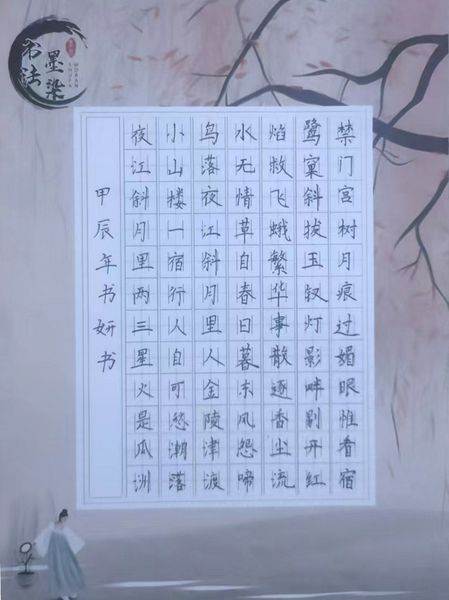 墨染
书法
MORAN
SHUFA
禁门宫树月痕过媚眼惟看宿
鹭窠斜拔玉钗灯影畔剔开红
焰救飞蛾繁华事散逐香尘流
水无情草自春日暮东风怨啼
鸟落夜江斜月里人金陵津渡
小山楼一宿行人自可愁潮落
夜江斜月里两三星火是瓜洲
甲辰年书妍书